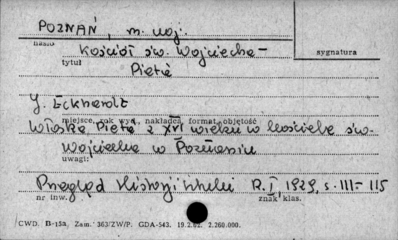 POZNAŃ, m. woj.
hasło
Kościół św. Wojciecha -
sygnatura
tytuł
Pietà
J. Eckhardt
miejsce, rok wyd., nakładca, format, objętość
Włoska Pietà z XVI wieku w kościele św.
Wojciecha w Poznaniu
uwagi:
Przegląd Historji Sztuki R. I, 1929, s. 111-115
nr inw. znak klas.
CWD. B-15a, Zam. 363/ZW/P. GDA-543. 19.2.62. 2.260.000.